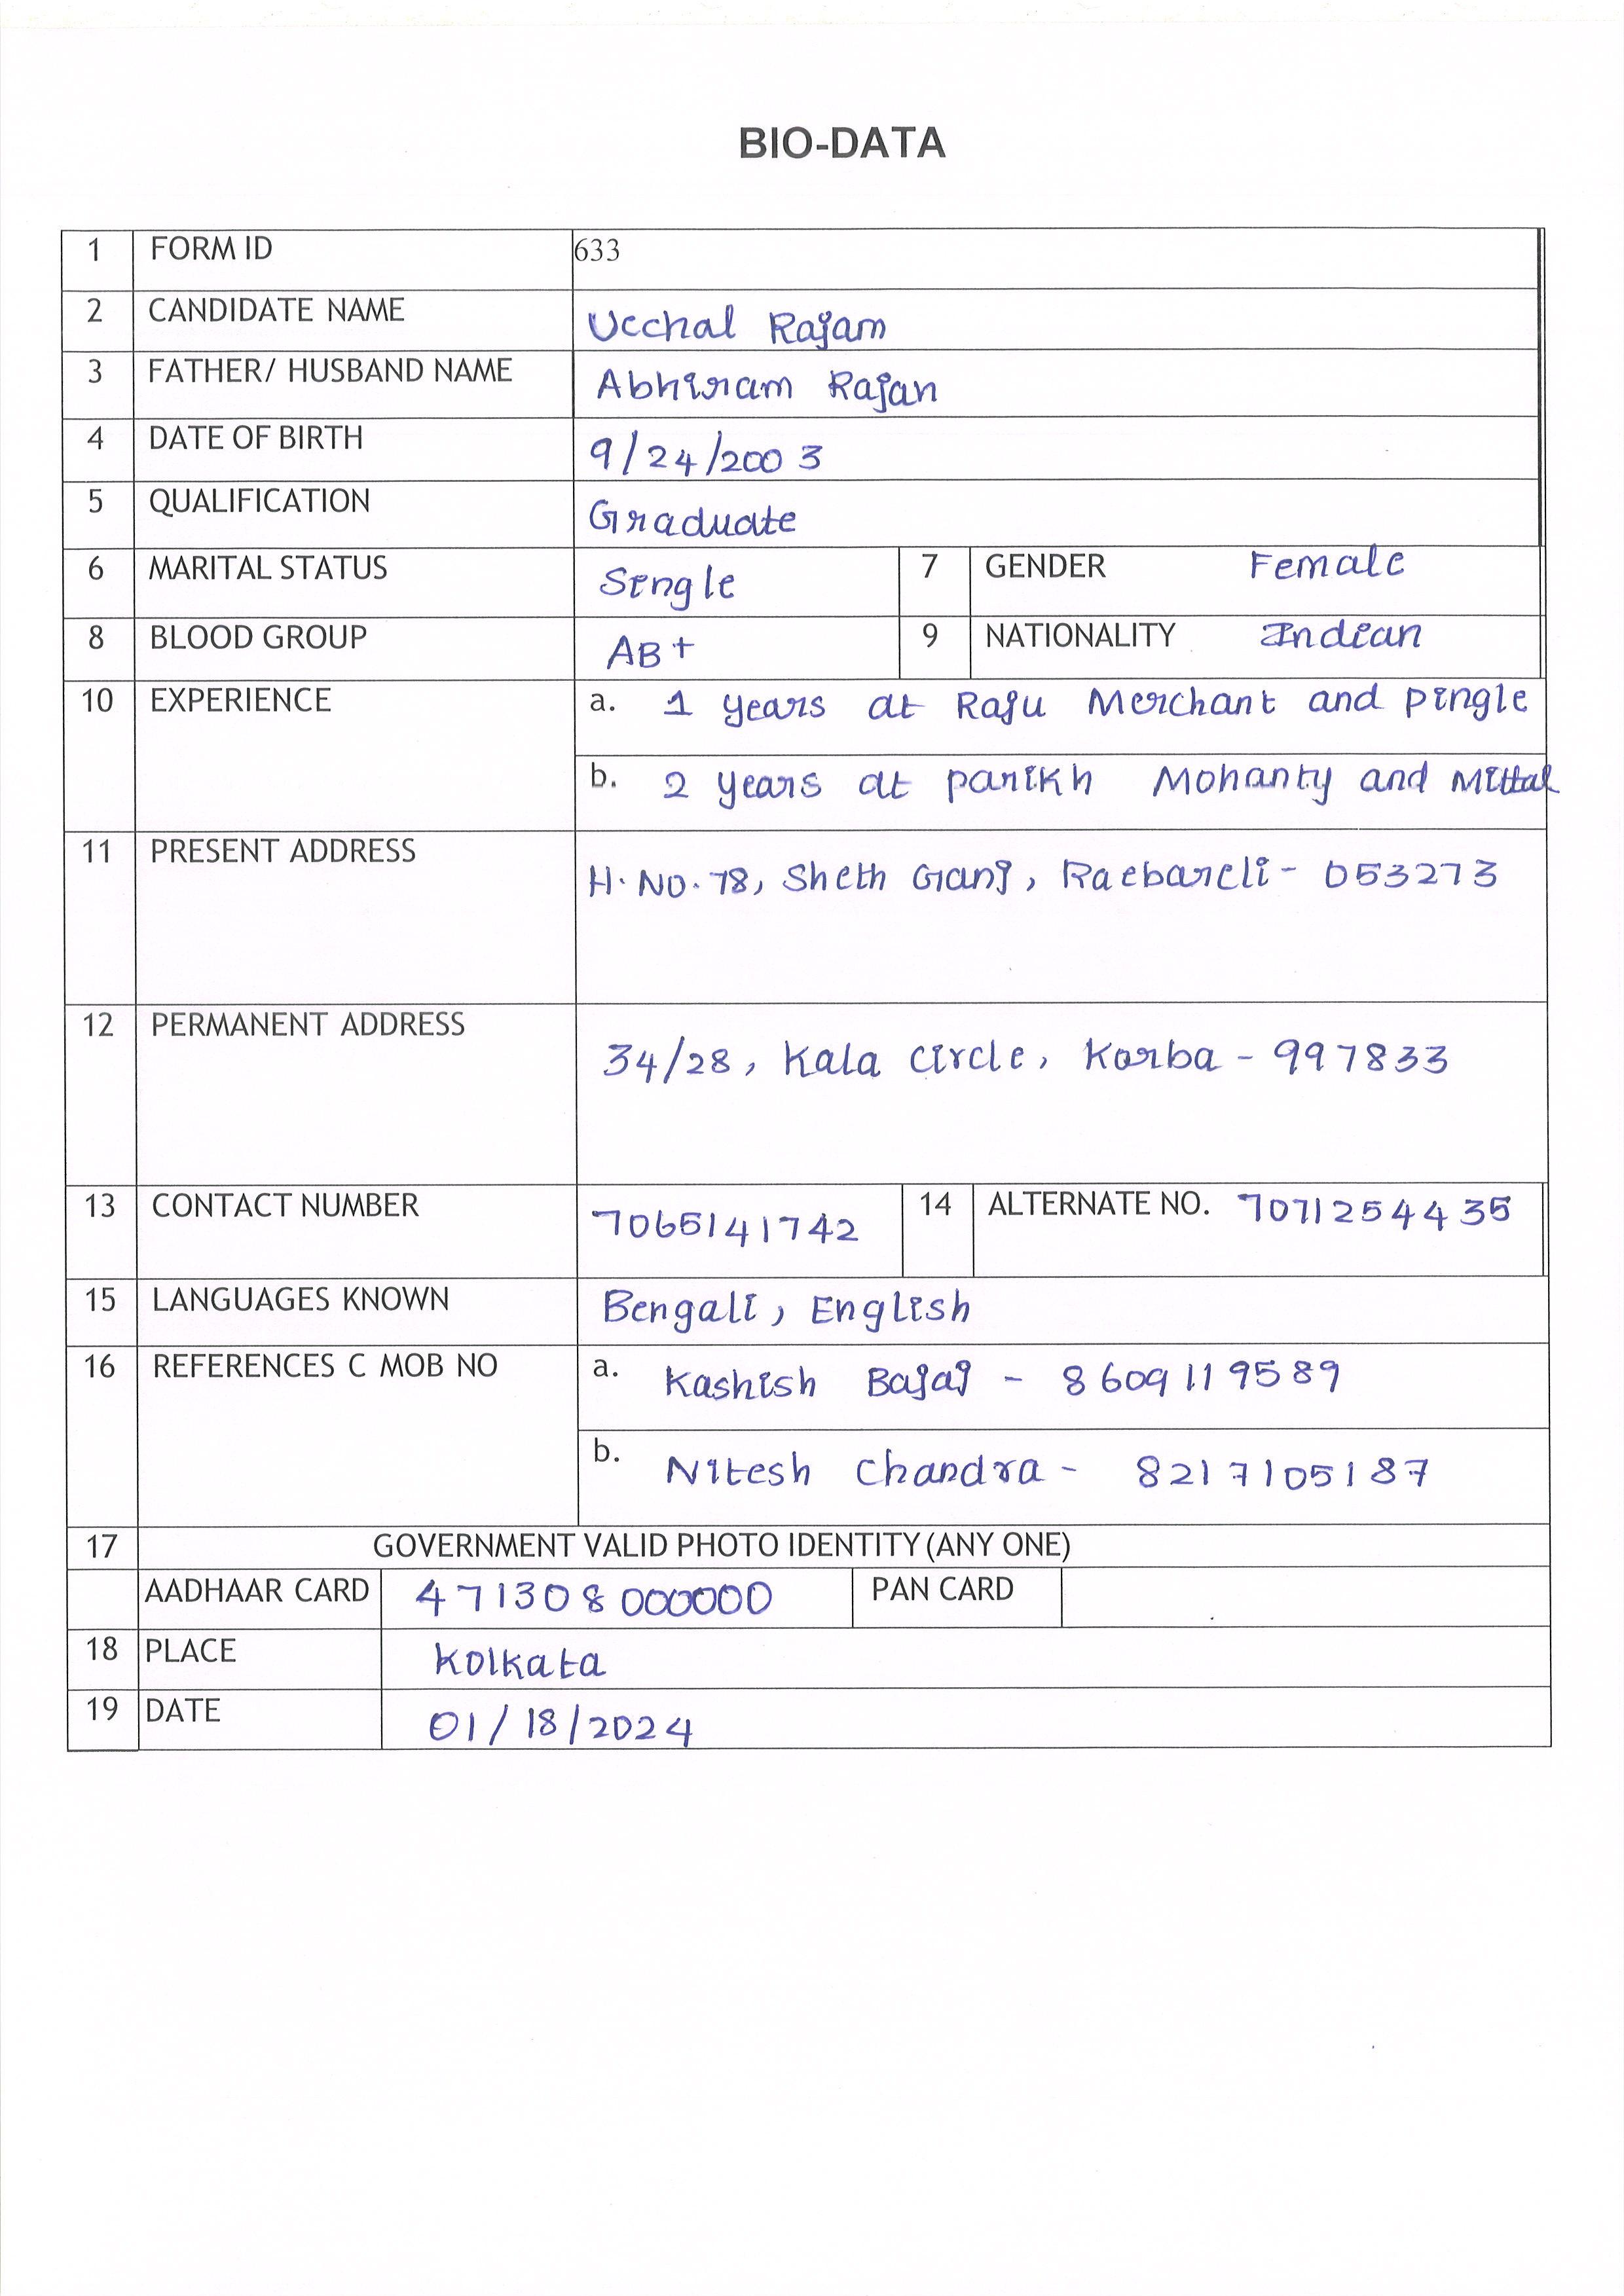 BIO-DATA
1 FORM ID 633
2 CANDIDATE NAME Ucchal Rajam
3 FATHER/ HUSBAND NAME Abhiram Rajan
4 DATE OF BIRTH 9/24/2003
5 QUALIFICATION Graduate
6 MARITAL STATUS Single 7 GENDER Female
8 BLOOD GROUP AB+ 9 NATIONALITY Indian
10 EXPERIENCE a. 1 years at Raju Merchant and pingle
b. 2 years at parikh Mohanty and Mittal
11 PRESENT ADDRESS H.NO.78, Sheth Ganj, Raebareli- 053273
12 PERMANENT ADDRESS 34/28, Kala circle, Korba - 997833
13 CONTACT NUMBER 7065141742 14 ALTERNATE NO. 7071254435
15 LANGUAGES KNOWN Bengali, English
16 REFERENCES C MOB NO a. Kashish Bajaj - 8609119589
b. Nitesh Chandra - 8217105187
17 GOVERNMENT VALID PHOTO IDENTITY (ANY ONE)
AADHAAR CARD 471308000000 PAN CARD
18 PLACE Kolkata
19 DATE 01/18/2024